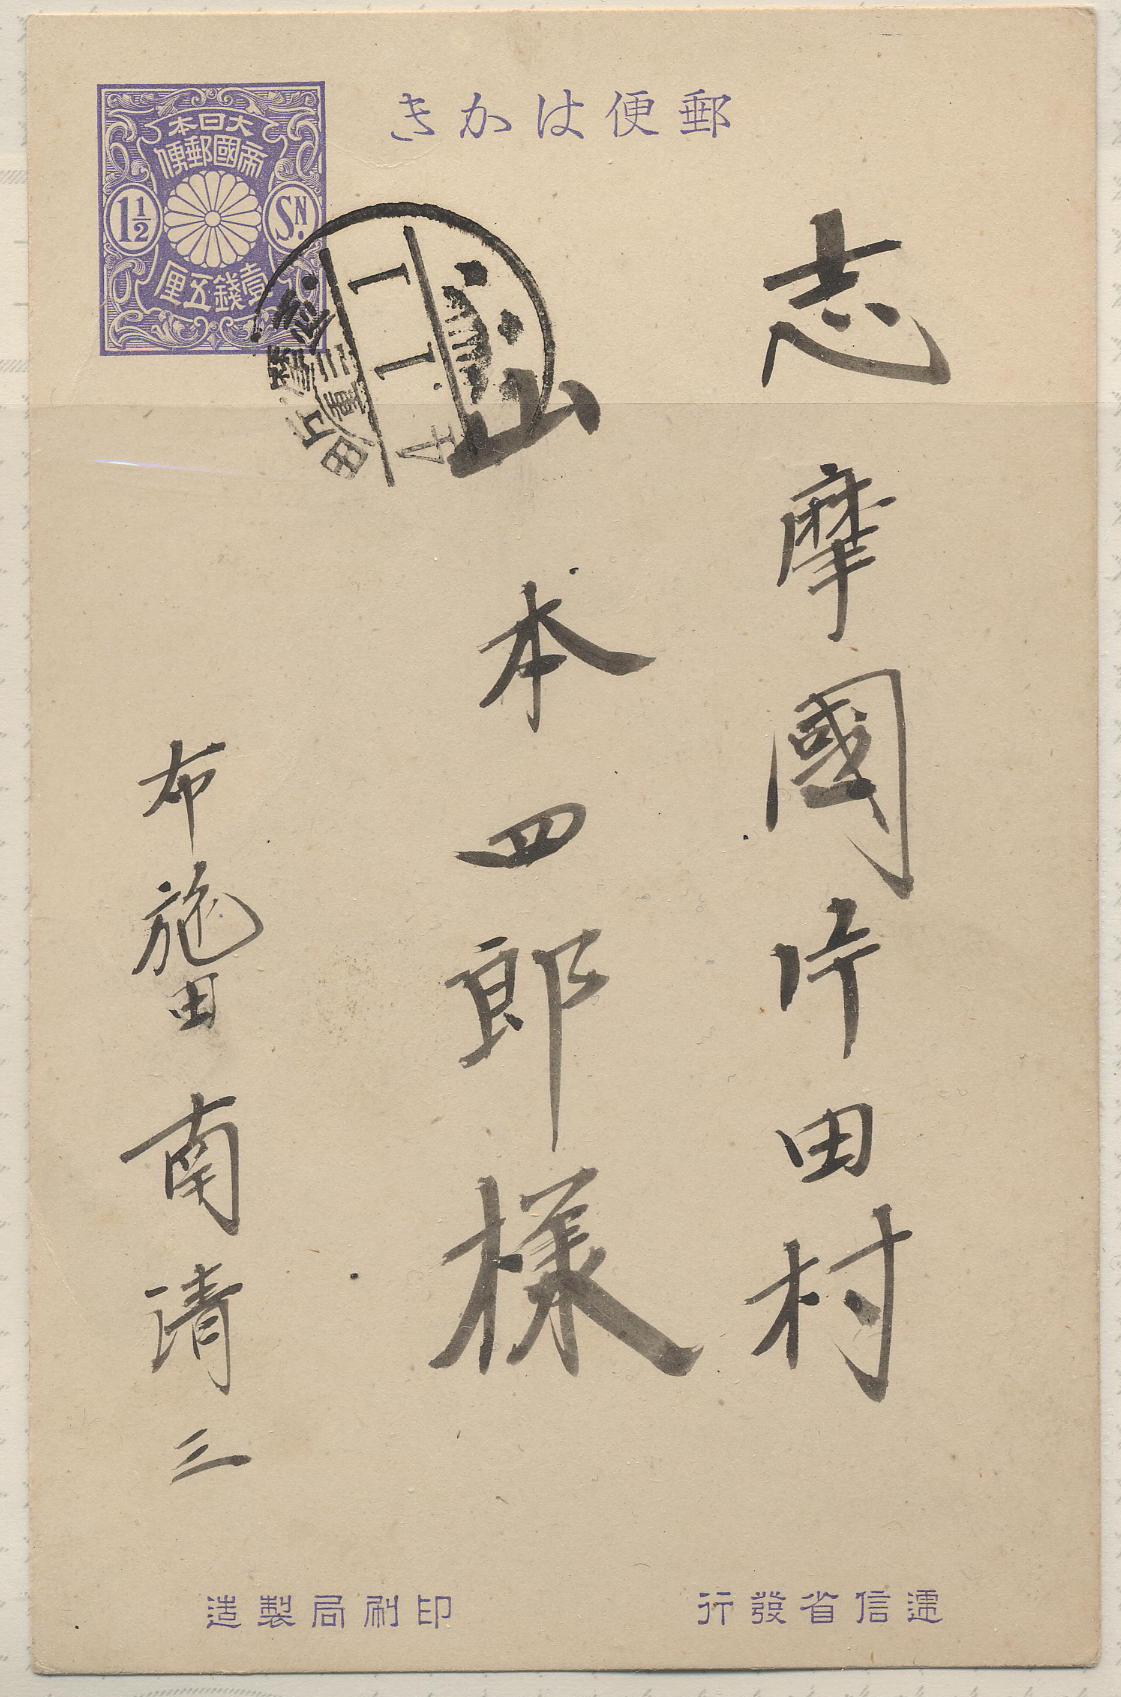 郵便はかき
大日本
帝國郵便
1½
SN.
壹錢五厘
三重
片田
1
1
4
志摩國片田村
山本四郎様
布施田南清三
遞信省發行
印刷局製造